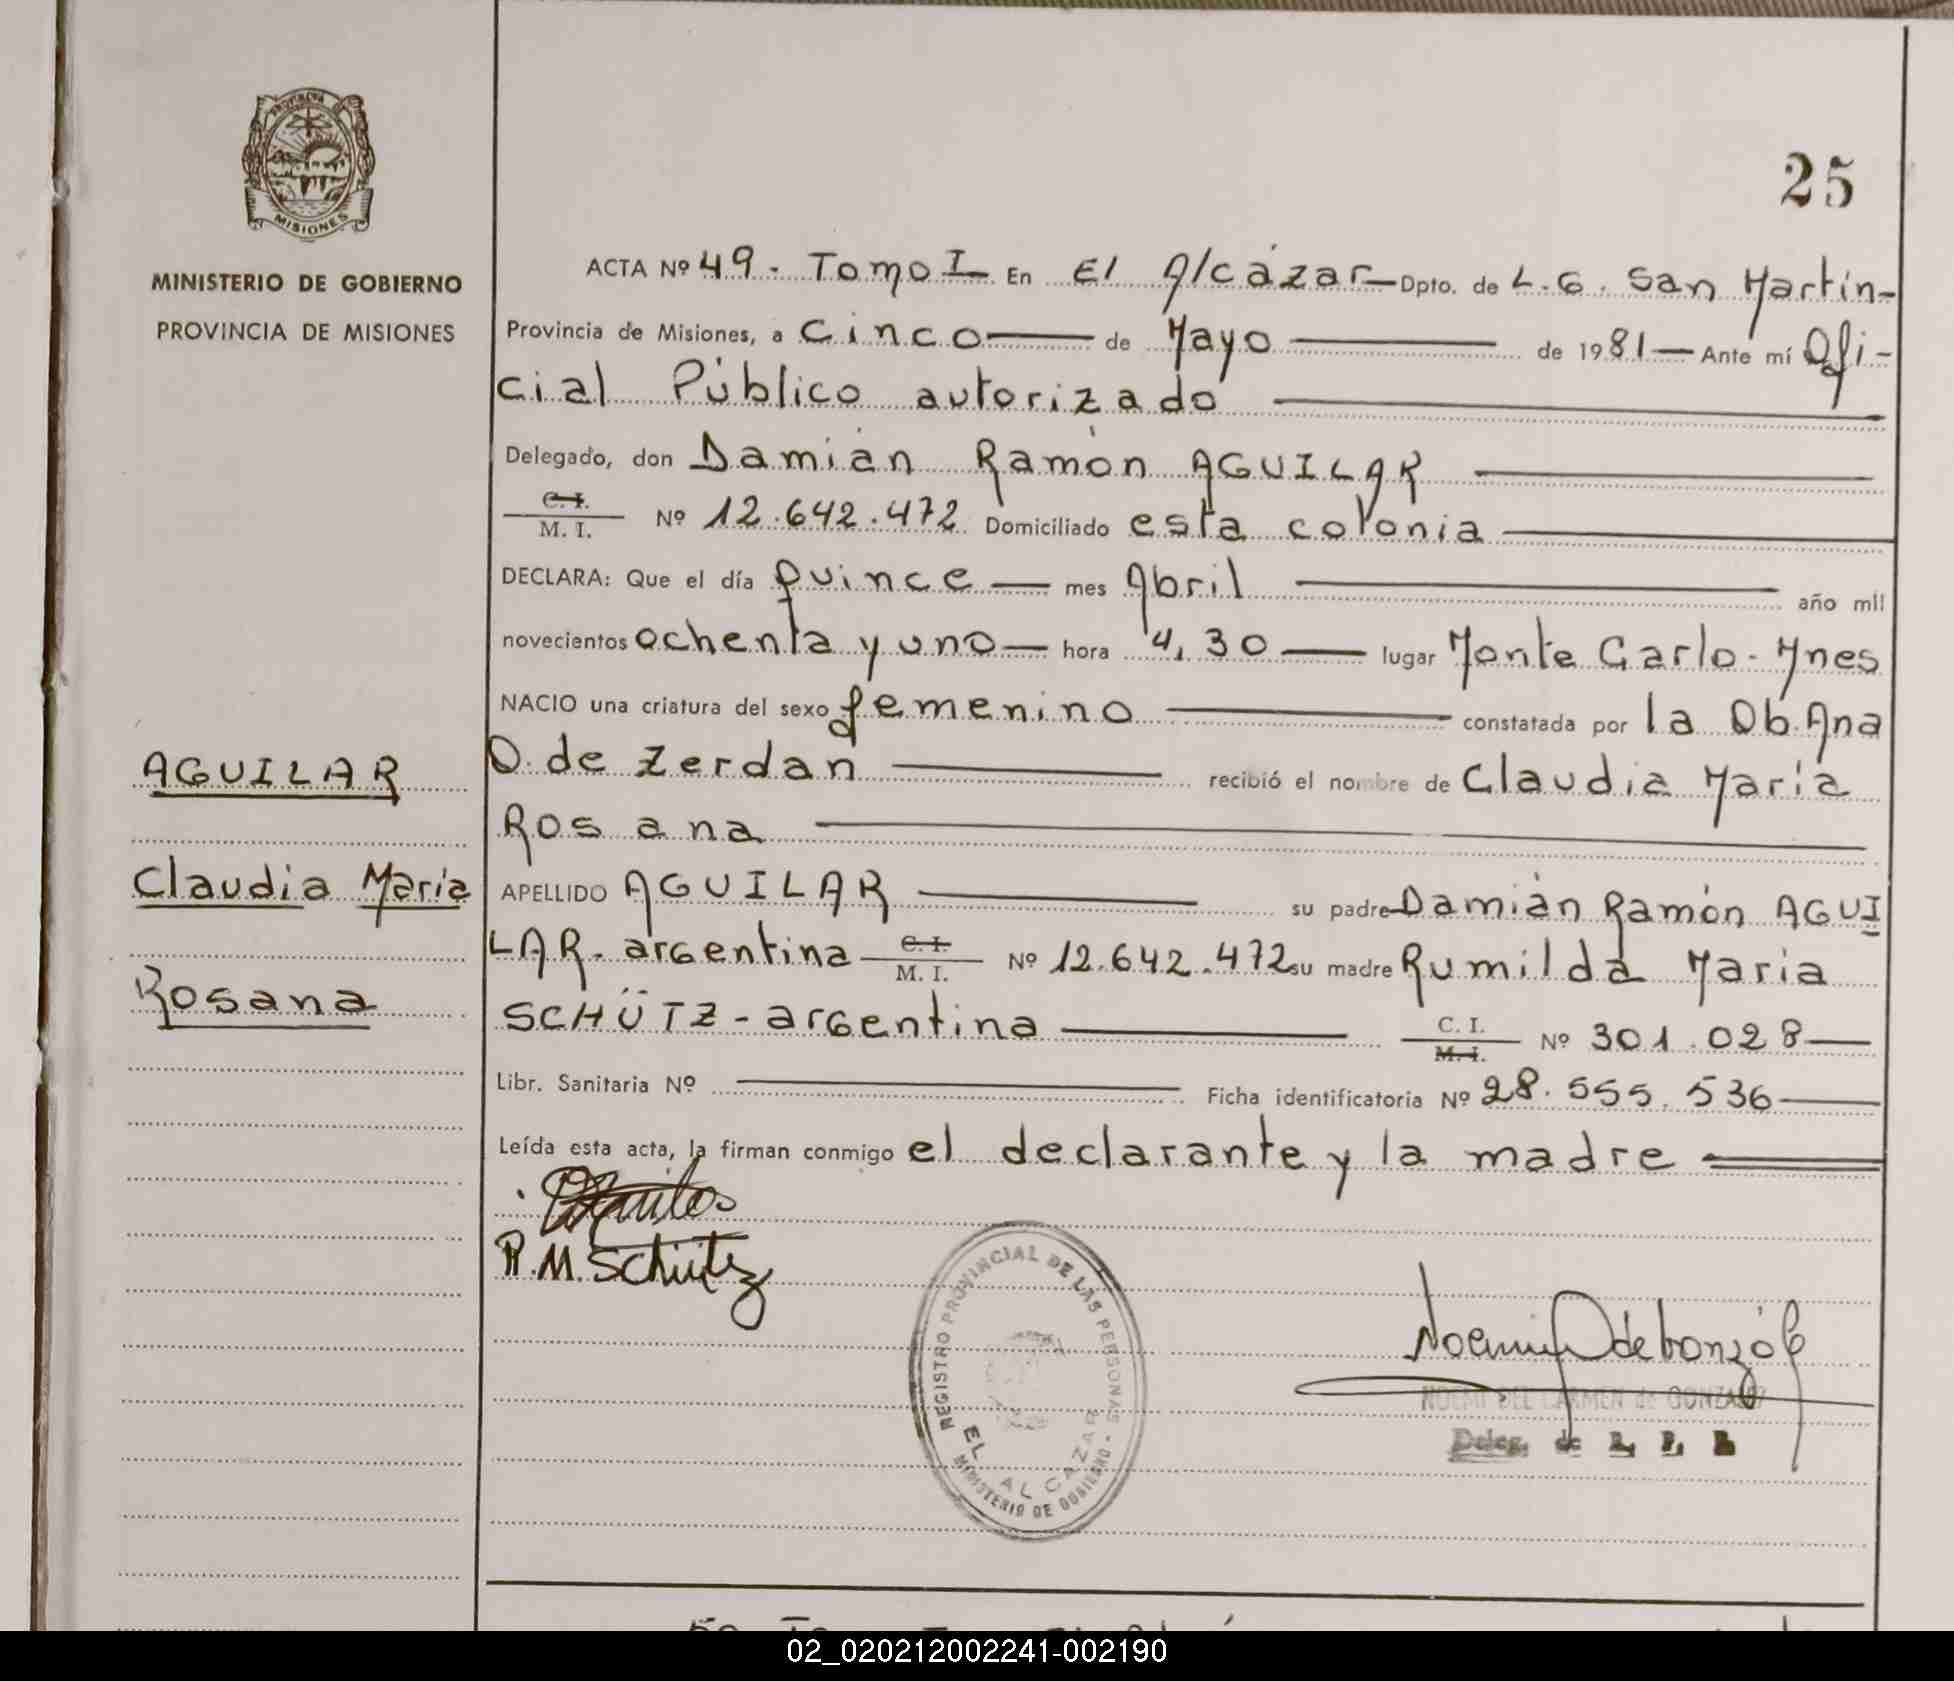 PROVINCIA
MISIONES
MINISTERIO DE GOBIERNO
PROVINCIA DE MISIONES
AGUILAR
Claudia María
Rosana
25
ACTA Nº 49. Tomo I En El Alcázar Dpto. de L. G. San Martín-
Provincia de Misiones, a Cinco de Mayo de 1981 Ante mí Ofi-
cial Público autorizado
Delegado, don Damián Ramón AGUILAR
C. I. M. I. Nº 12.642.472 Domiciliado esta colonia
DECLARA: Que el día quince mes Abril año mil
novecientos ochenta y uno hora 4,30 lugar Monte Carlo. Mnes
NACIO una criatura del sexo femenino constatada por la Ob. Ana
O. de Zerdan recibió el nombre de Claudia María
Rosana
APELLIDO AGUILAR su padre Damián Ramón AGUI
LAR. argentina C. I. M. I. Nº 12.642.472 su madre Rumilda María
SCHÜTZ - argentina C. I. M. I. Nº 301.028
Libr. Sanitaria Nº Ficha identificatoria Nº 28.555.536
Leída esta acta, la firman conmigo el declarante y la madre
R. M. Schütz
REGISTRO PROVINCIAL DE LAS PERSONAS
EL ALCAZAR
MINISTERIO DE GOBIERNO
NOEMI DEL CARMEN de GONZALEZ
Deleg. de R. P. P.
02_020212002241-002190